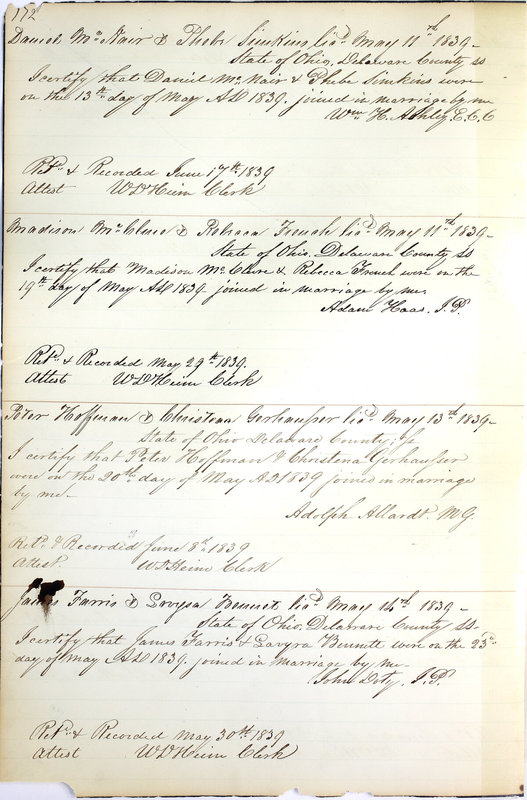 172
Daniel McNair & Phebe Simkins licd May 11th 1839-
State of Ohio, Delaware County ss
I certify that Daniel McNair & Phebe Simkins were
on the 13th day of May AD 1839. joined in marriage by me
Wm H. Ashley E.C.C
Retd & Recorded June 17th 1839
Attest W D Heim Clerk
Madison McClure & Rebecca French licd May 11th 1839-
State of Ohio, Delaware County ss
I certify that Madison McClure & Rebecca French were on the
19th day of May AD 1839 joined in marriage by me.
Adam Haas. J.P.
Retd & Recorded May 29th 1839.
Attest W D Heim Clerk
Peter Hoffman & Christena Gerhausser licd May 13th 1839-
State of Ohio Delaware County, ss
I certify that Peter Hoffman & Christena Gerhausser
were on the 20th day of May AD 1839 joined in marriage
by me-
Adolph Allardt. M.G.
Retd & Recorded June 8th 1839
Attest. W D Heim Clerk
James Farris & Lovysa Bennet licd May 14th 1839-
State of Ohio, Delaware County ss.
I certify that James Farris & Lovyra Bennett were on the 23d
day of May AD 1839. joined in marriage by me-
John Doty. J.P.
Retd & Recorded May 30th 1839
Attest W D Heim Clerk